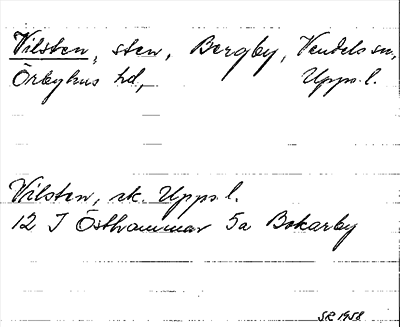 Vilsten, sten, Bergby, Vendels sn,
Örbyhus hd, Upps. l.
Vilsten, ek. Upps. l.
12 I Östhammar 5a Bokarby
SR 1958